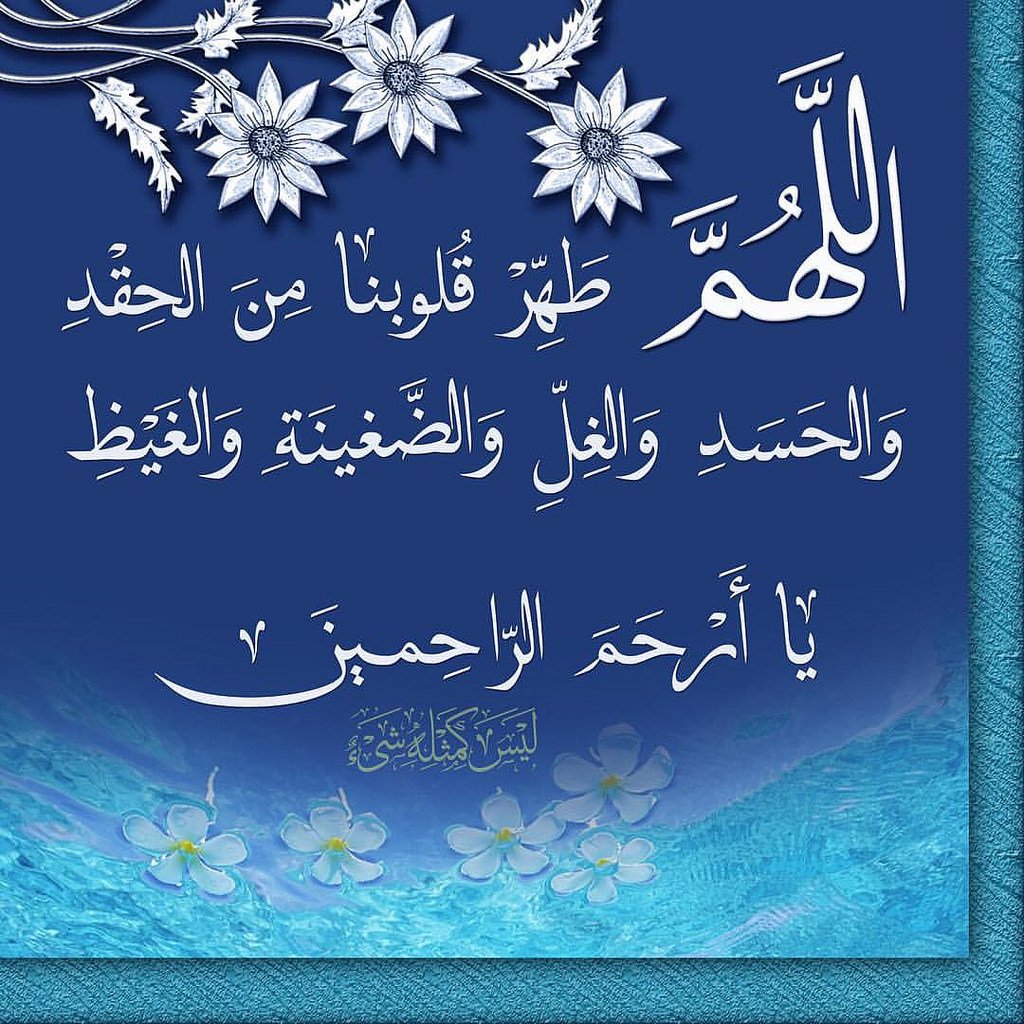 اللَّهُمَّ طَهِّرْ قُلوبنا مِنَ الحِقْدِ
وَالحَسَدِ وَالغِلِّ وَالضَّغينَةِ وَالغَيْظِ
يا أَرْحَمَ الرّاحِمينَ
لَيْسَ كَمِثْلِهِ شَيْءٌ